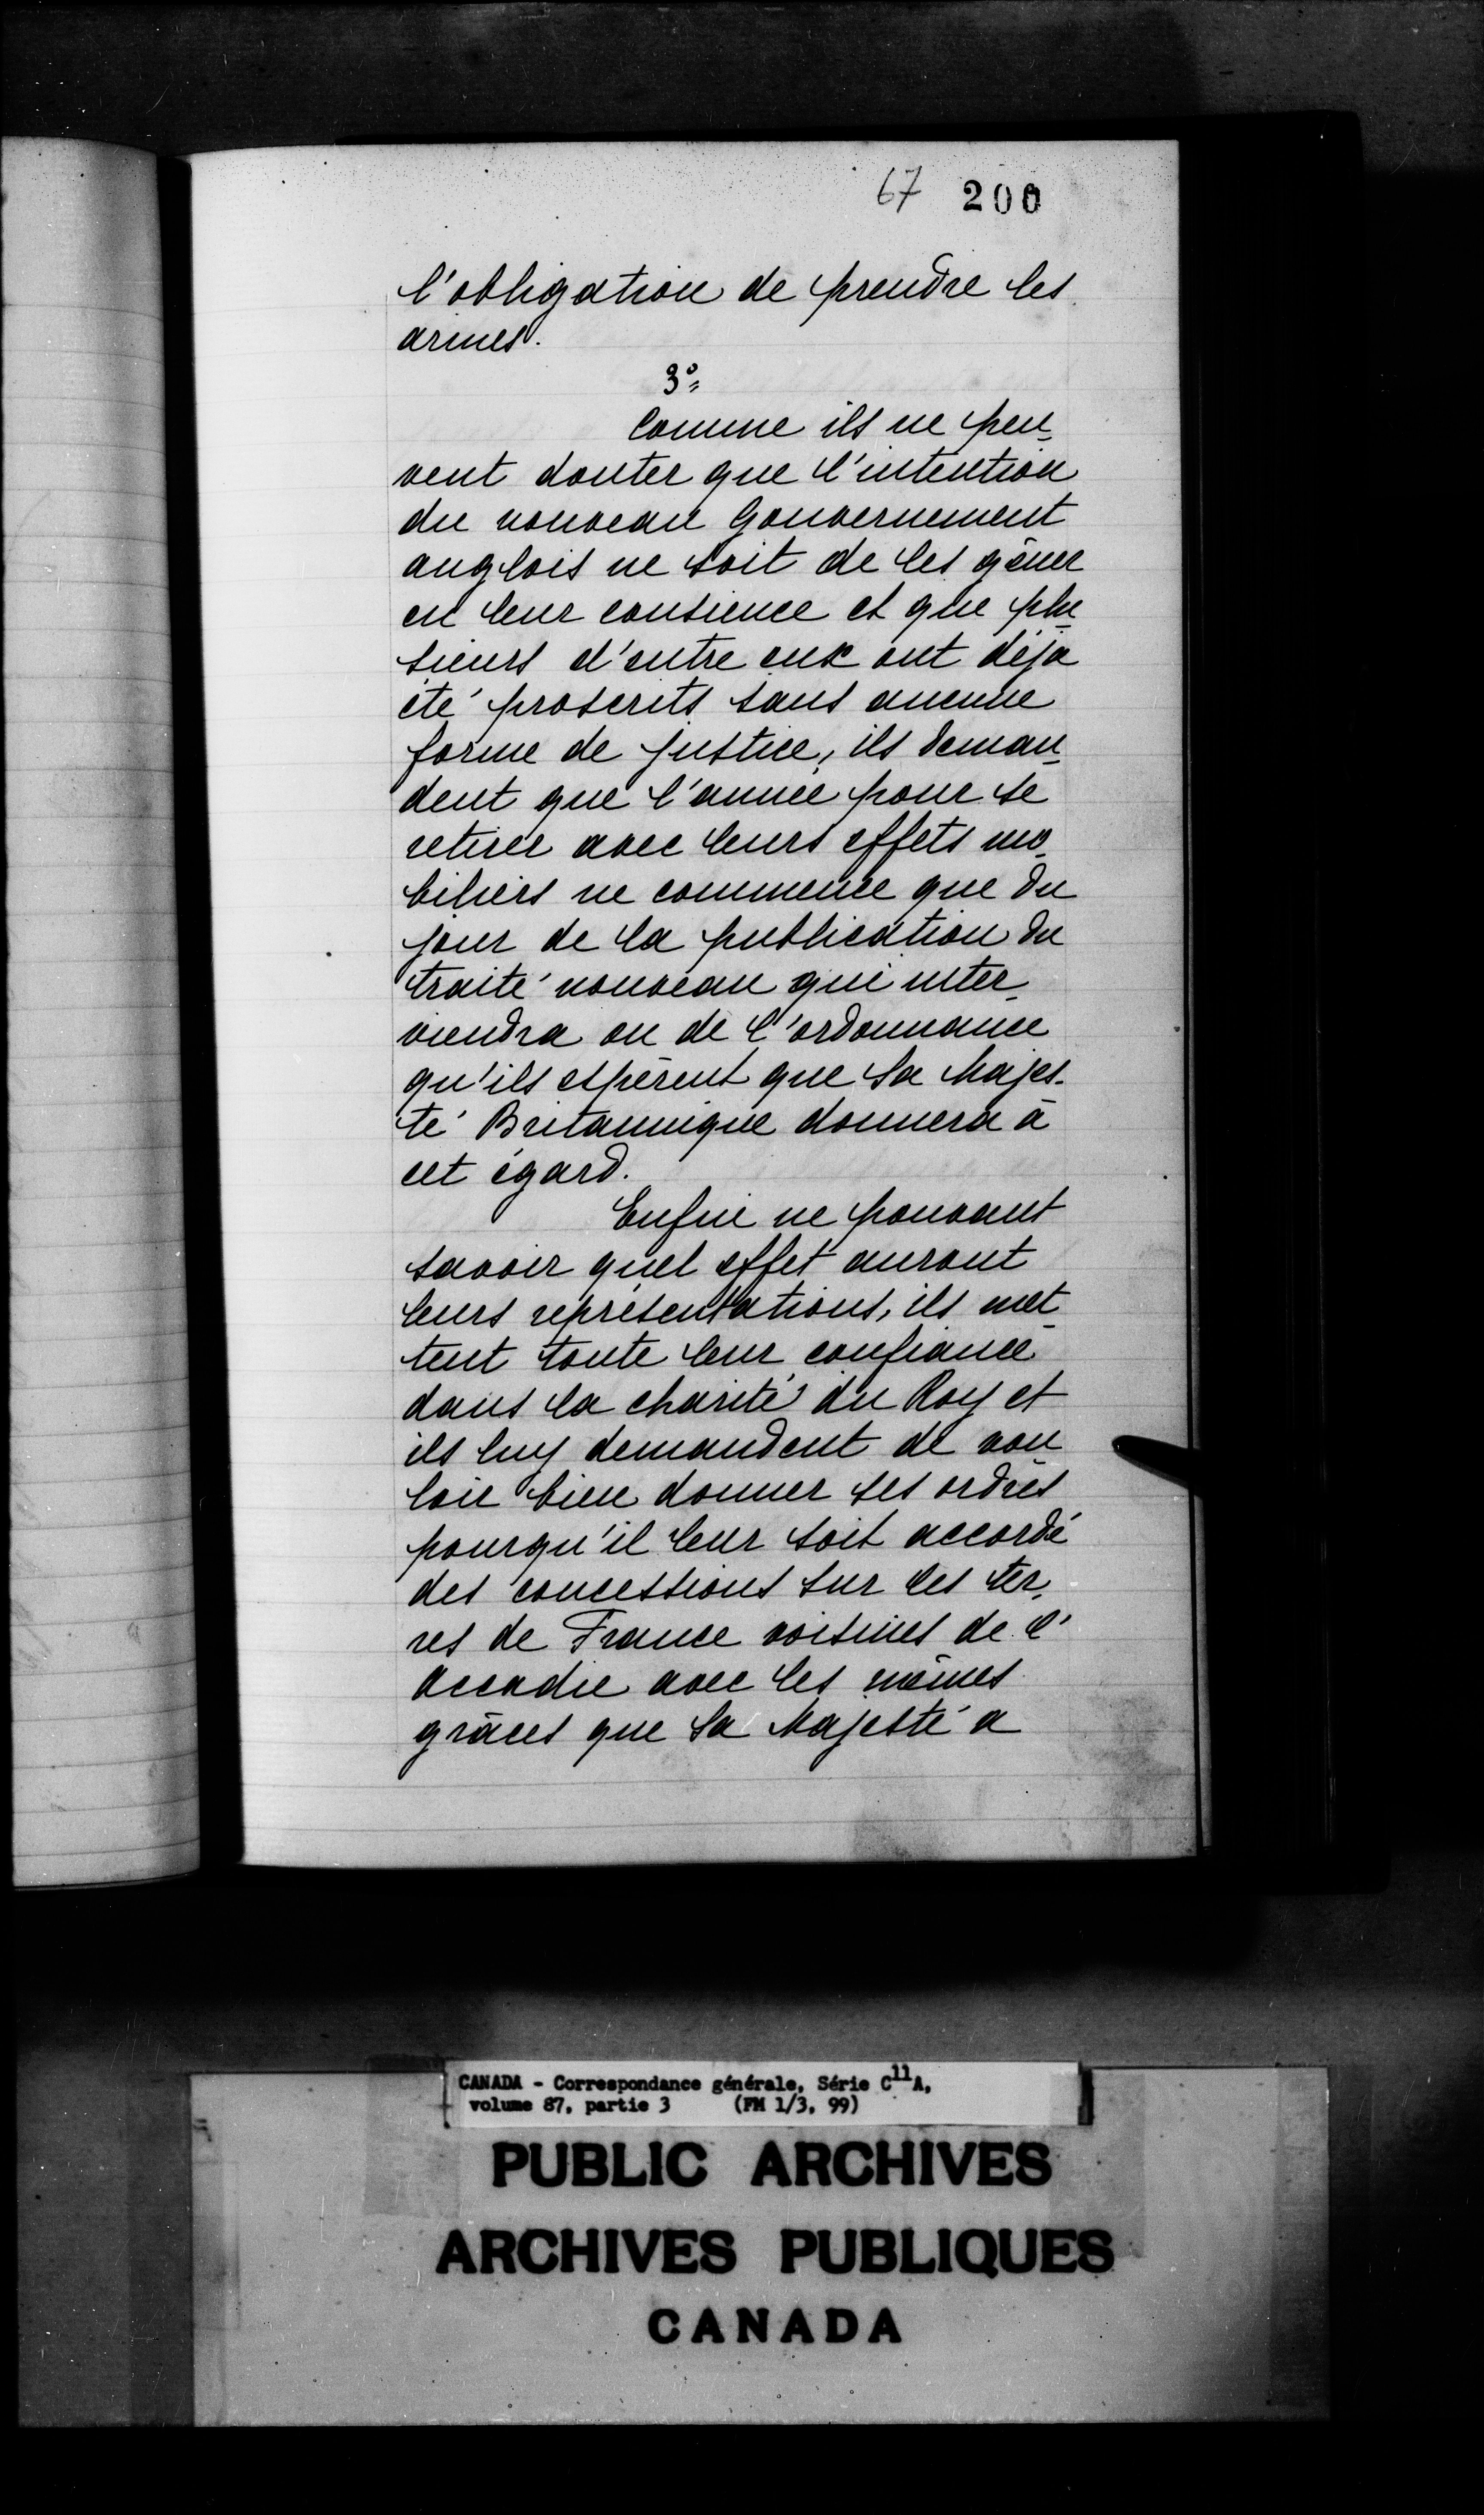 67 200
l'obligation de prendre les
armes.
3°
Comme ils ne peu-
vent douter que l'intention
du nouveau Gouvernement
anglois ne soit de les gêner
en leur consience et que plu
sieurs d'entre eux ont déja
été proscrits sans aucune
forme de justice, ils deman-
dent que l'année pour se
retirer avec leurs effets mo-
biliers ne commence que du
jour de la publication du
traité nouveau qui inter-
viendra ou de l'ordonnance
qu'ils espèrent que Sa Majes-
té Britannique donnera à
cet égard.
Enfin ne pouvant
savoir quel effet auront
leurs représentations, ils met-
tent toute leur confiance
dans la charité du Roy et
ils luy demandent de vou
loir bien donner ses ordres
pourqu'il leur soit accordé
des concessions sur les ter-
res de France voisines de l'
accadie avec les mêmes
grâces que Sa Majesté a
CANADA - Correspondance générale, Série C11A,
volume 87, partie 3 (FM 1/3, 99)
PUBLIC ARCHIVES
ARCHIVES PUBLIQUES
CANADA